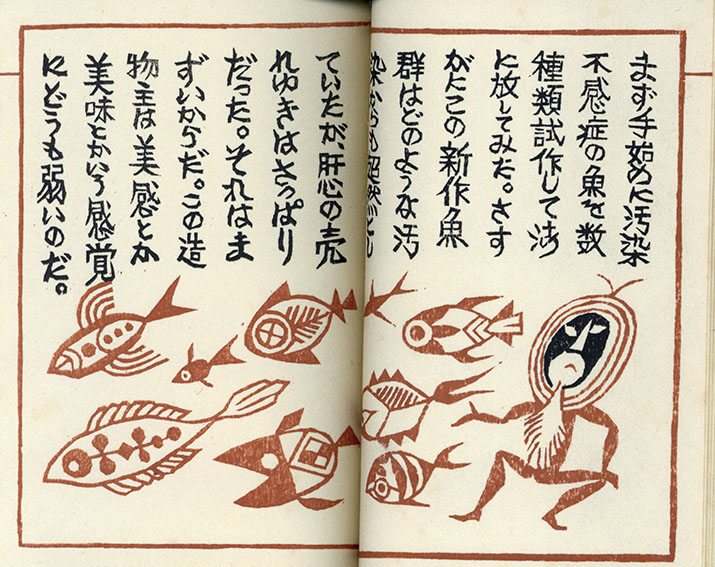 まず手始めに汚染
不感症の魚を数
種類試作して海
に放してみた。さす
がにこの新作魚
群はどのような汚
染からも超然とし
ていたが、肝心の売
れゆきはさっぱり
だった。それはま
ずいからだ。この造
物主は美感とか
美味とかいう感覚
にどうも弱いのだ。